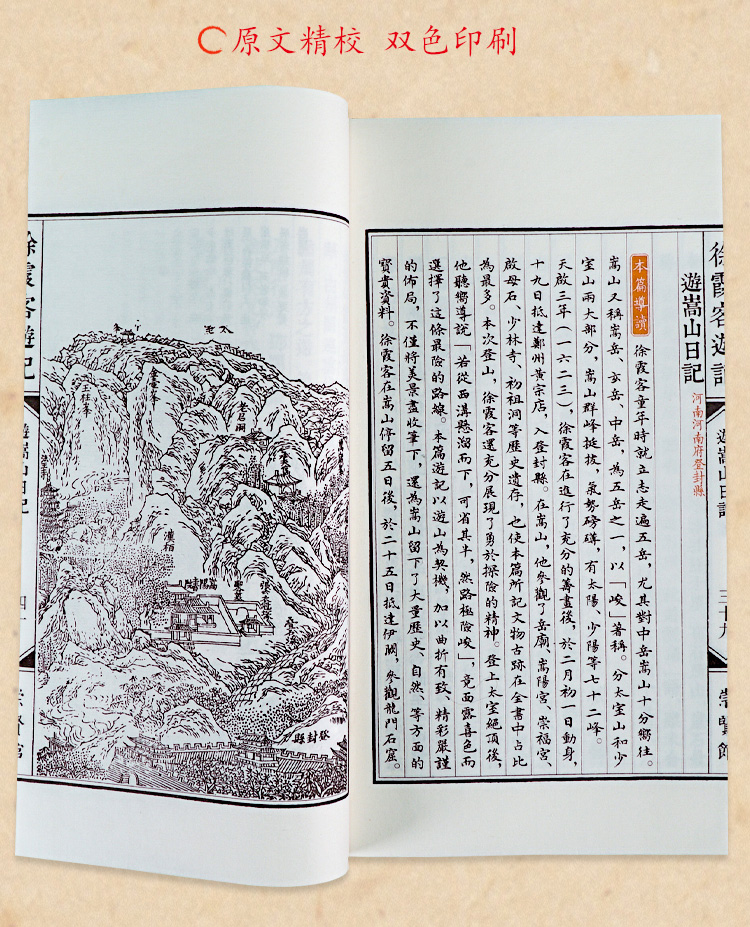 原文精校 双色印刷
徐霞客遊記
遊嵩山日記
三十九
崇賢館
遊嵩山日記
河南河南府登封縣
本篇導讀
徐霞客童年時就立志走遍五岳，尤其對中岳嵩山十分嚮往。
嵩山又稱嵩岳、玄岳、中岳，為五岳之一，以「峻」著稱。分太室山和少
室山兩大部分，嵩山群峰挺拔，氣勢磅礴，有太陽、少陽等七十二峰。
天啟三年（一六二三），徐霞客在進行了充分的籌畫後，於二月初一日動身，
十九日抵達鄭州黃宗店，入登封縣。在嵩山，他參觀了岳廟、嵩陽宮、崇福宮、
啟母石、少林寺、初祖洞等歷史遺存，也使本篇所記文物古跡在全書中占比
為最多。本次登山，徐霞客還充分展現了勇於探險的精神。登上太室絕頂後，
他聽嚮導說「若從西溝懸溜而下，可省其半，然路極險峻」，竟面露喜色而
選擇了這條最險的路線。本篇遊記以遊山為契機，加以曲折有致、精彩嚴謹
的佈局，不僅將美景盡收筆下，還為嵩山留下了大量歷史、自然、等方面的
寶貴資料。徐霞客在嵩山停留五日後，於二十五日抵達伊闕，參觀龍門石窟。
太室
老君洞
漢柏
嵩陽宮
登封縣
徐霞客遊記
遊嵩山日記
四十
崇賢館